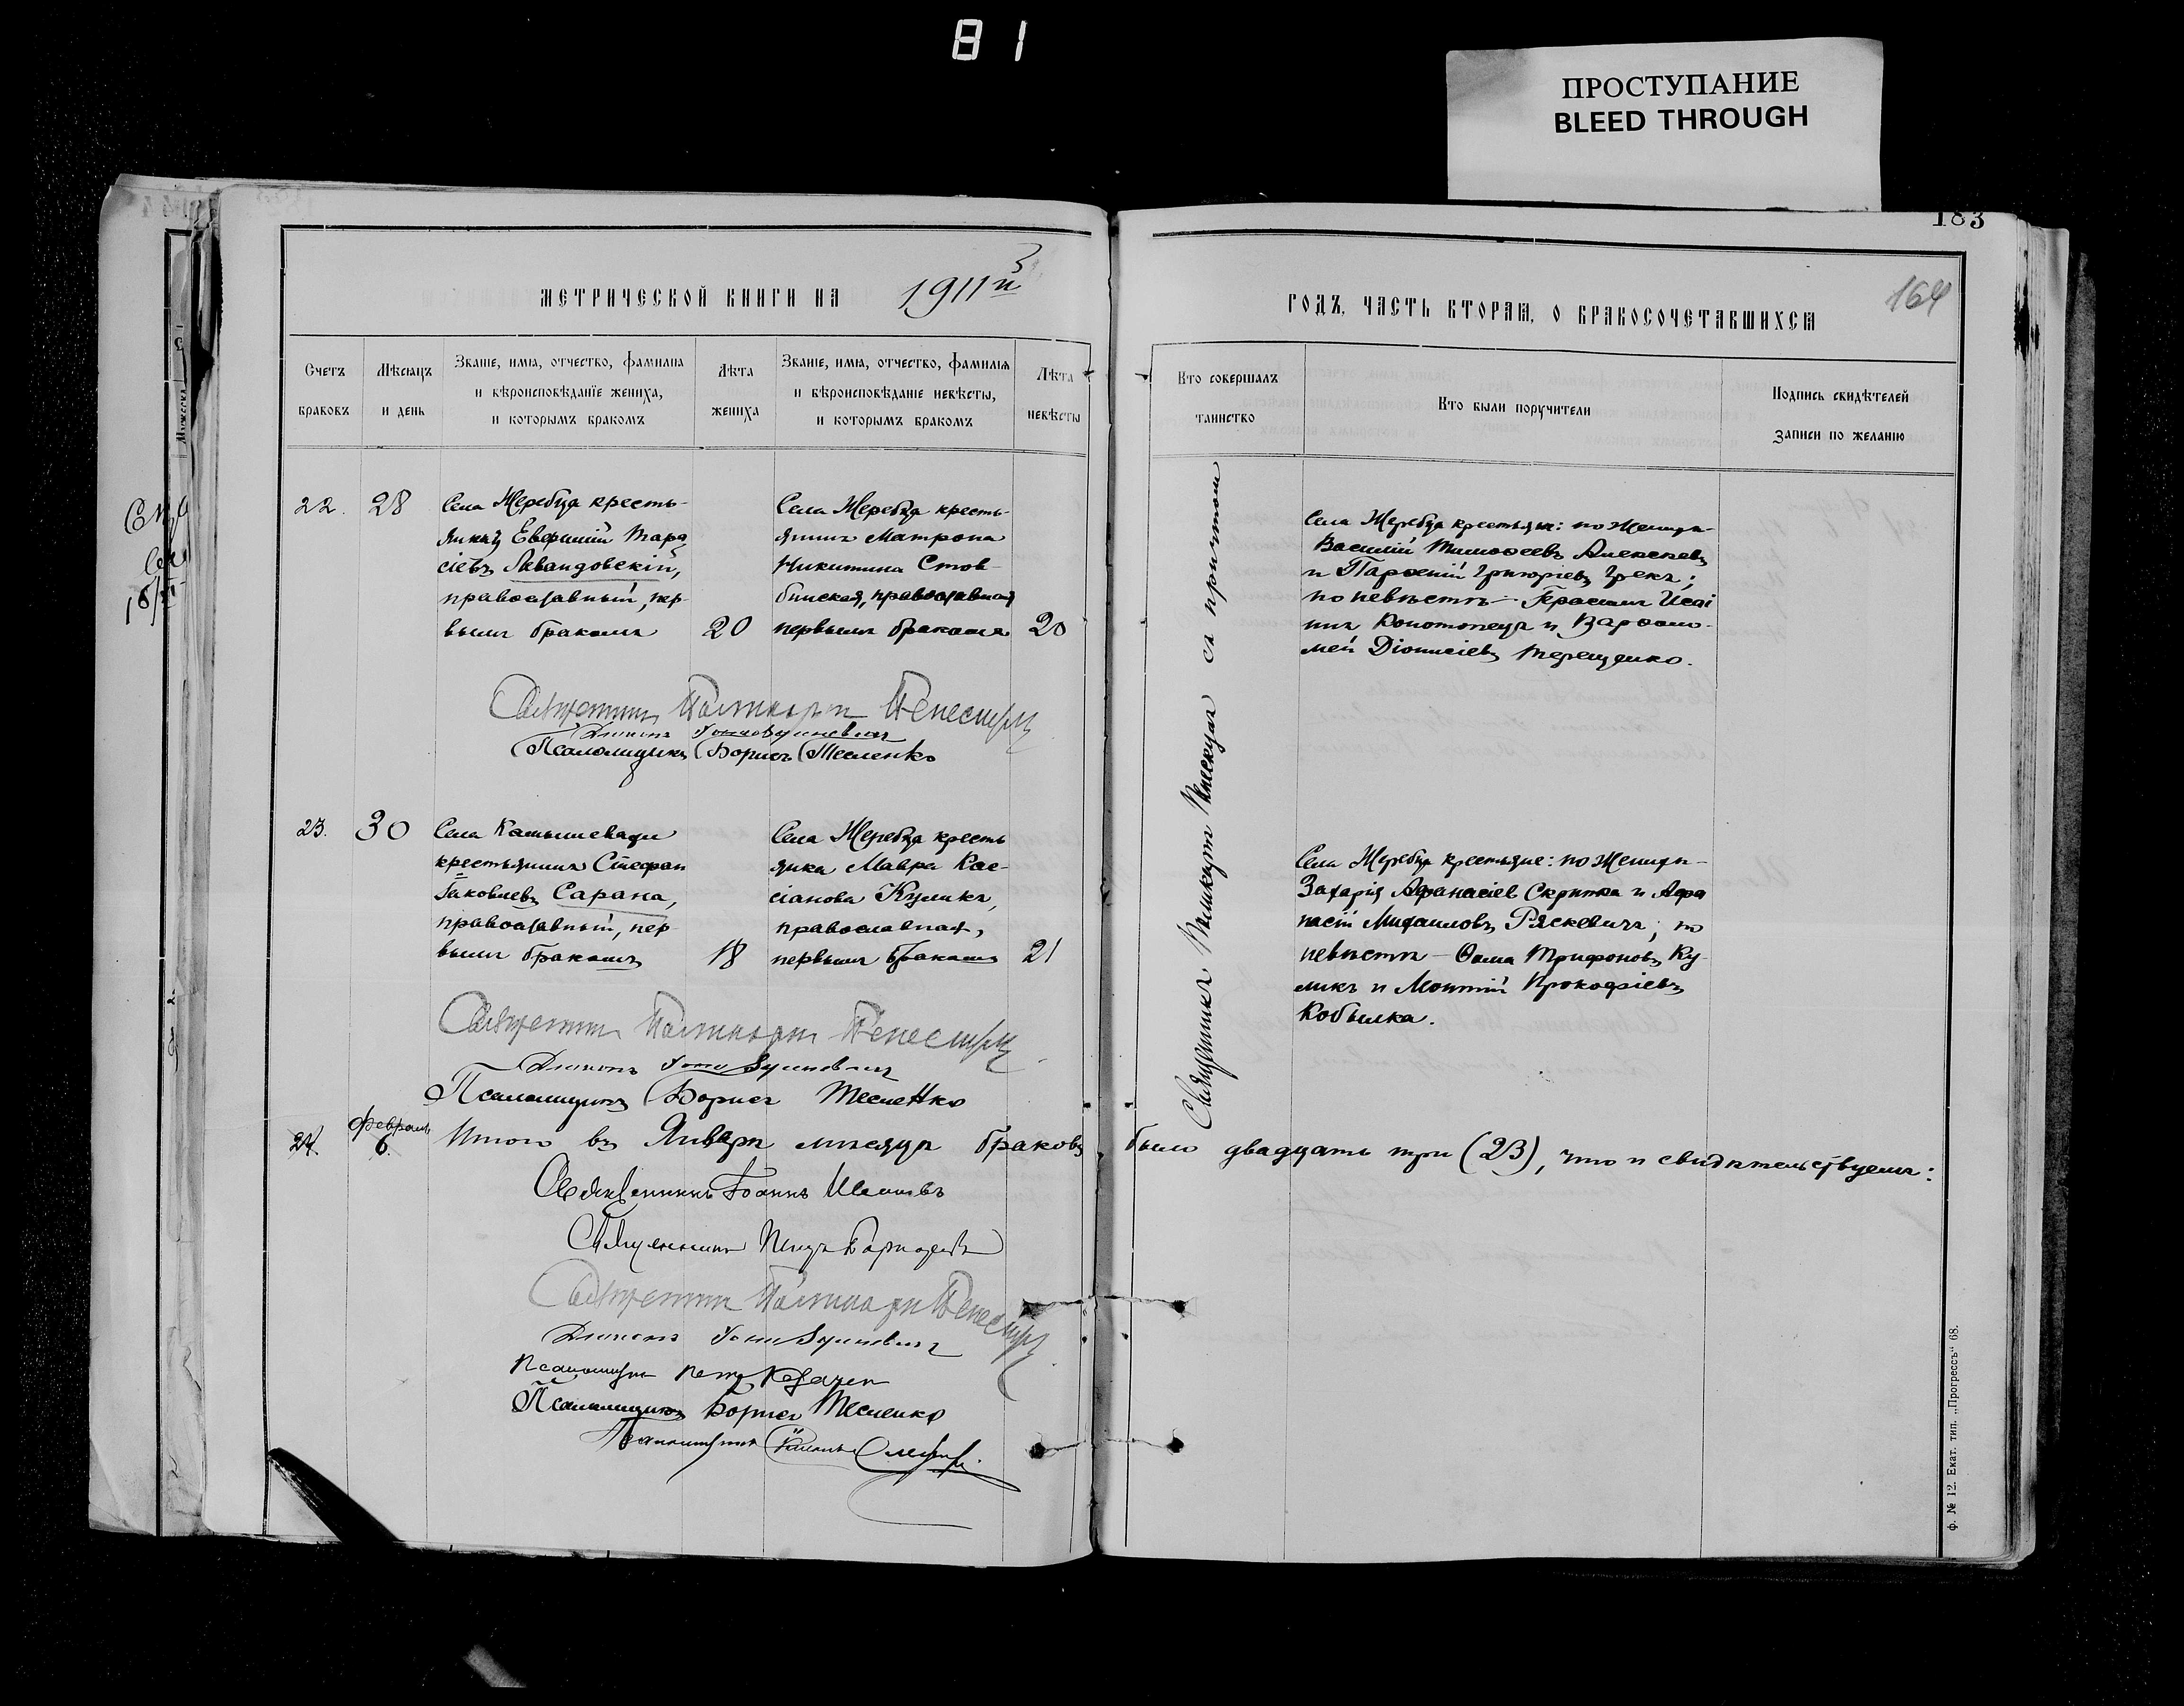 81
ПРОСТУПАНИЕ
BLEED THROUGH
183
164
МЕТРИЧЕСКОЙ КНИГИ НА 1911й
ГОДЪ, ЧАСТЬ ВТОРАЯ, О БРАКОСОЧЕТАВШИХСЯ
Счетъ
браковъ
Мѣсяцъ
и день
Званіе, имя, отчество, фамилія
и вѣроисповѣданіе жениха,
и которымъ бракомъ
Лѣта
жениха
Званіе, имя, отчество, фамилія
и вѣроисповѣданіе невѣсты,
и которымъ бракомъ
Лѣта
невѣсты
Кто совершалъ
таинство
Кто были поручители
Подпись свидѣтелей
записи по желанію
22.
28
Села Жеребца кресть-
янинъ Евфимій Тара
сіевъ Левандовскій,
православный, пер-
вымъ бракомъ
20
Села Жеребца кресть-
янка Матрона
Никитина Стов-
бинская, православная
первымъ бракомъ
20
Священникъ Поликарпъ Пенескулъ съ причтомъ
Села Жеребца крестьяне: по женихѣ
Василій Тимоѳеевъ Алексѣевъ
и Парѳеній Григоріевъ Грекъ;
по невѣстѣ - Герасимъ Исаі
инъ Конотопецъ и Варѳоло-
мей Діонисіевъ Терещенко.
Священникъ Поликарпъ Пенескулъ
Діаконъ
Псаломщикъ Борисъ Тесленко
23.
30
Села Камышевахи
крестьянинъ Стефан
Іаковлевъ Сарана,
православный, пер-
вымъ бракомъ
18
Села Жеребца кресть
янка Мавра Кас-
сіанова Куликъ,
православная,
первымъ бракомъ
21
Села Жеребца крестьяне: по женихѣ -
Захарія Афанасіев Скрипка и Афа
насій Михаиловъ Ряскевичъ; по
невѣстѣ - Ѳома Трифоновъ Ку-
ликъ и Монтій Прокофіевъ
Кобылка.
Священникъ Поликарпъ Пенескулъ
Діаконъ
Псаломщикъ Борисъ Тесленко
24.
Февраль
6.
Итого въ Январѣ мѣсяцѣ браковъ было двадцать три (23), что и свидѣтельствуемъ:
Священникъ Іоаннъ
Священникъ
Священникъ Поликарпъ Пенескулъ
Діаконъ
Псаломщикъ Петръ
Псаломщикъ Борисъ Тесленко
Псаломщикъ
ф. № 12. Екат. тип. „Прогрессъ“ 68.